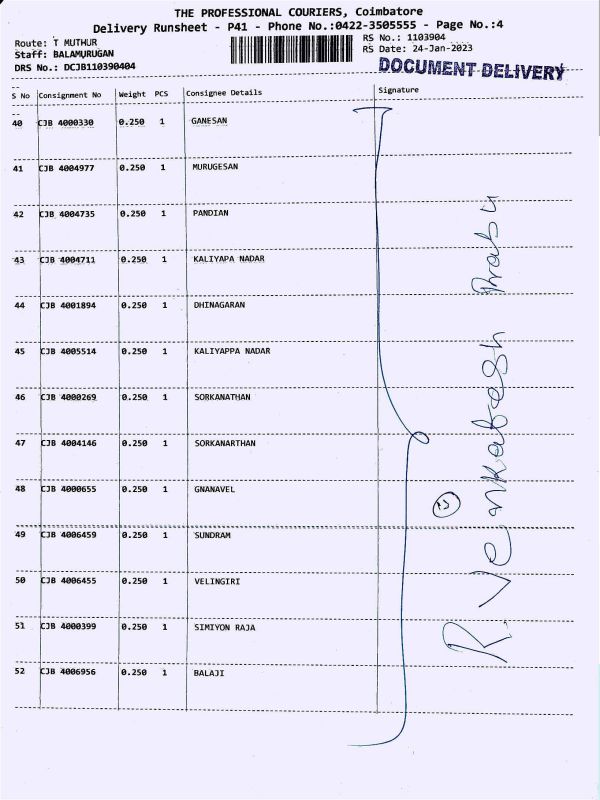 THE PROFESSIONAL COURIERS, Coimbatore
Delivery Runsheet - P41 - Phone No.:0422-3505555 - Page No.:4
Route: T MUTHUR
Staff: BALAMURUGAN
DRS No.: DCJB110390404
RS No.: 1103904
RS Date: 24-Jan-2023
DOCUMENT DELIVERY
S No Consignment No Weight PCS Consignee Details Signature
40 CJB 4000330 0.250 1 GANESAN
41 CJB 4004977 0.250 1 MURUGESAN
42 CJB 4004735 0.250 1 PANDIAN
43 CJB 4004711 0.250 1 KALIYAPA NADAR
44 CJB 4001894 0.250 1 DHINAGARAN
45 CJB 4005514 0.250 1 KALIYAPPA NADAR
46 CJB 4000269 0.250 1 SORKANATHAN
47 CJB 4004146 0.250 1 SORKANARTHAN
48 CJB 4000655 0.250 1 GNANAVEL
49 CJB 4006459 0.250 1 SUNDRAM
50 CJB 4006455 0.250 1 VELINGIRI
51 CJB 4000399 0.250 1 SIMIYON RAJA
52 CJB 4006956 0.250 1 BALAJI
R. Venkatesh Prabu